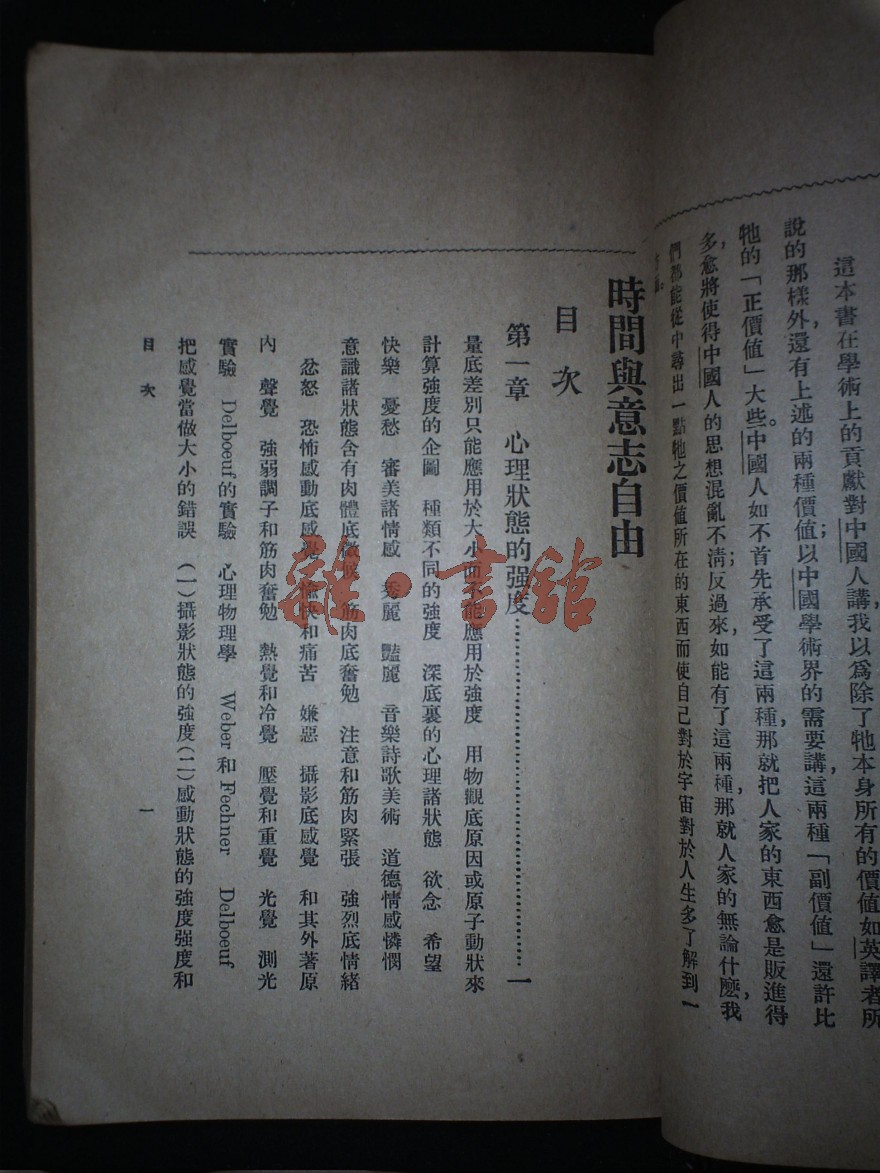 這本書在學術上的貢獻對中國人講，我以爲除了牠本身所有的價値如英譯者所
說的那樣外還有上述的兩種價値；以中國學術界的需要講，這兩種「副價値」還許比
牠的「正價値」大些。中國人如不首先承受了這兩種，那就把人家的東西愈是販進得
多，愈將使得中國人的思想混亂不淸；反過來，如能有了這兩種，那就人家的無論什麼，我
們都能從中尋出一點牠之價値所在的東西而使自己對於宇宙對於人生多了解到一
時間與意志自由
目次
第一章 心理狀態的强度……………………一
量底差別只能應用於大小而不能應用於強度 用物觀底原因或原子動狀來
計算強度的企圖 種類不同的強度 深底裏的心理諸狀態 欲念 希望
快樂 憂愁 審美諸情感 秀麗 豔麗 音樂詩歌美術 道德情感憐憫
意識諸狀態含有肉體底徵候 筋肉底奮勉 注意和筋肉緊張 強烈底情緖
忿怒 恐怖感動底感覺 愉快和痛苦 嫌惡 攝影底感覺 和其外著原
內 聲覺 強弱調子和筋肉奮勉 熱覺和冷覺 壓覺和重覺 光覺 測光
實驗 Delboeuf的實驗 心理物理學 Weber和Fechner Delboeuf
把感覺當做大小的錯誤 （一）攝影狀態的強度（二）感動狀態的強度強度和
目次
一
雜·書館